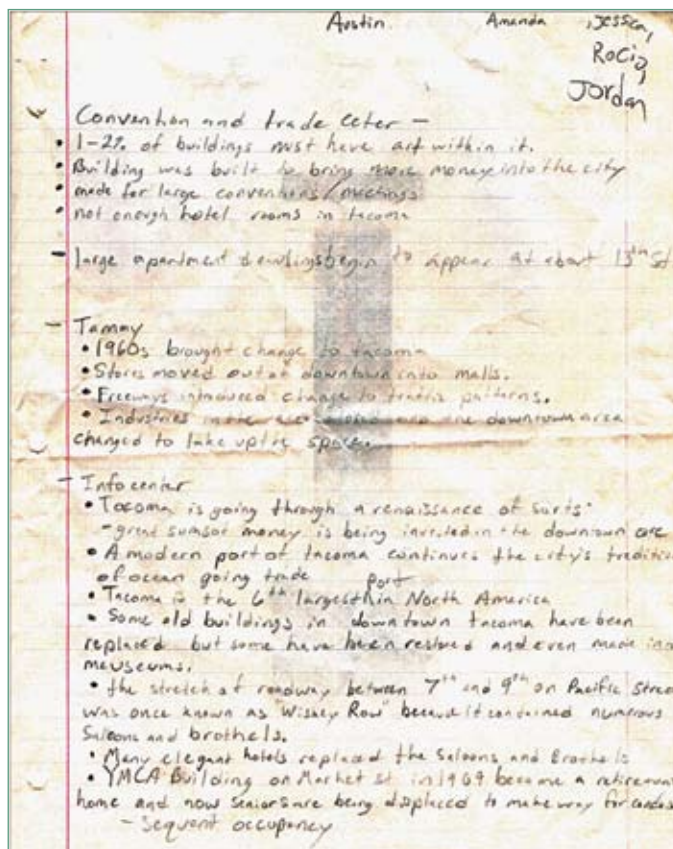 Austin Amanda Jessica,
Rocio,
Jordan
Convention and trade Ceter -
• 1-2% of buildings must have art within it.
• Building was built to bring more money into the city
• made for large conventions/meetings
• not enough hotel rooms in tacoma
- large apartment begin to appear at about 13th St
- Tammy
• 1960s brought change to tacoma
• Stores moved out of downtown into malls.
• Freeways introduced change to traffic patterns.
• Industries in the and the downtown area
changed to take up the space.
- Info center
• Tacoma is going through a renaissance of sorts
- great sums of money is being invested in the downtown core
• A modern port of tacoma continues the city's tradition
of ocean going trade
port
• Tacoma is the 6th largest in North America
• Some old buildings in downtown tacoma have been
replaced but some have been restored and even made into
meuseums.
• the stretch of roadway between 7th and 9th on Pacific Street
was once known as Wiskey Row" because it contained numerous
Saloons and brothels.
• Many elegant hotels replaced the Saloons and Brothels
• YMCA Building on Market st in 1969 became a retirement
home and now seniors are being displaced to make way for condos
- Sequent occupancy